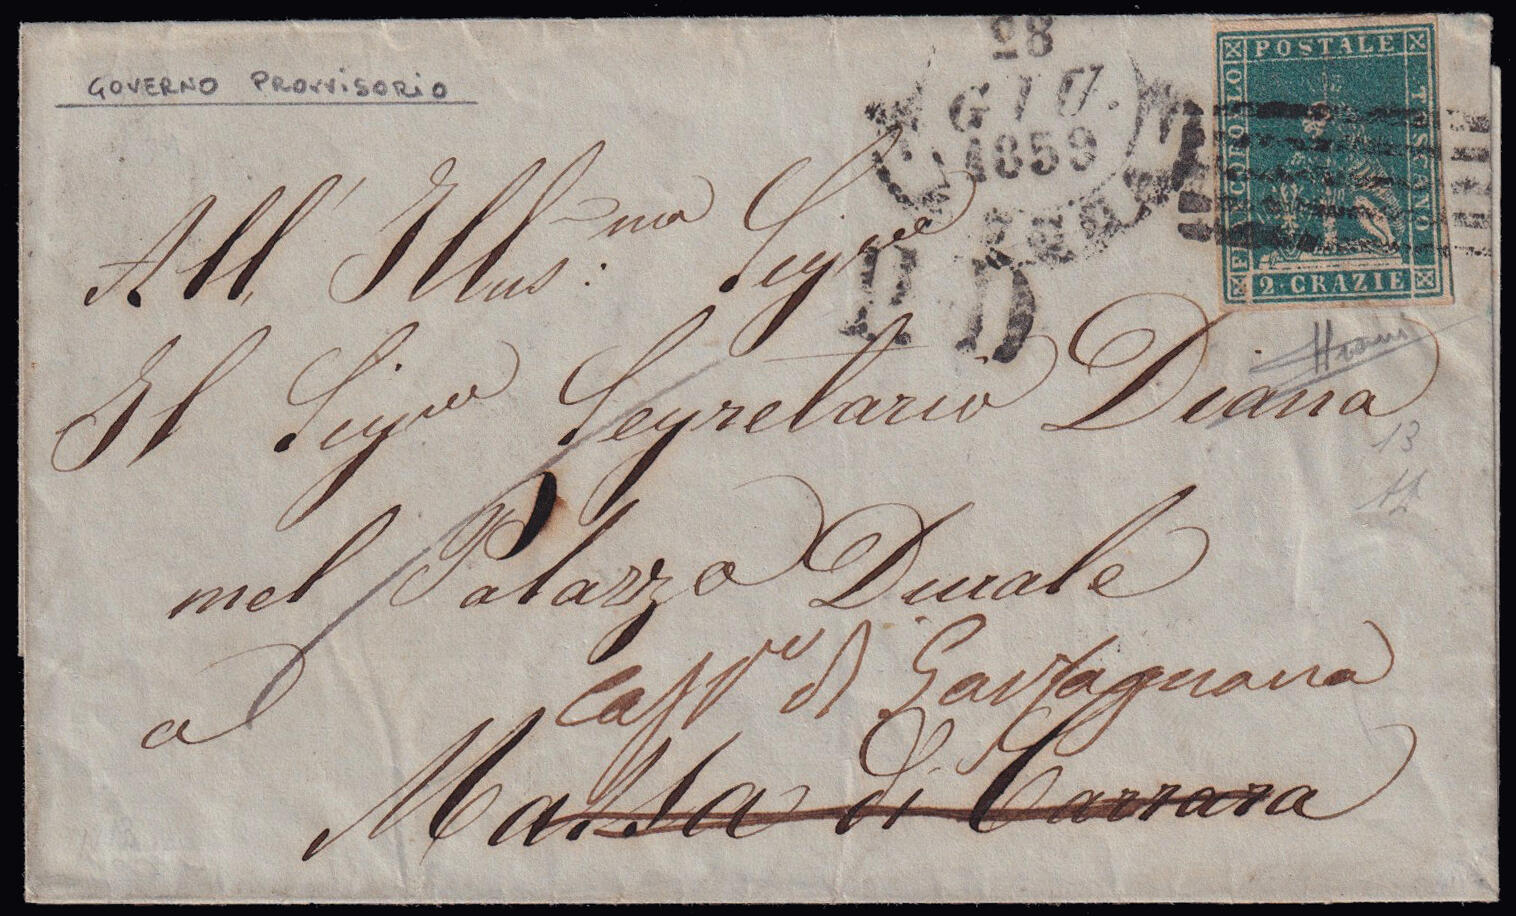 GOVERNO PROVVISORIO
28
GIU.
1859
PD
FRANCOBOLLO
POSTALE
TOSCANO
2 CRAZIE
All' Illus:mo Sigre
Il Sigre Segretario Diana
nel Palazzo Ducale
a
di Gastagnana
Massa di Carrara
13